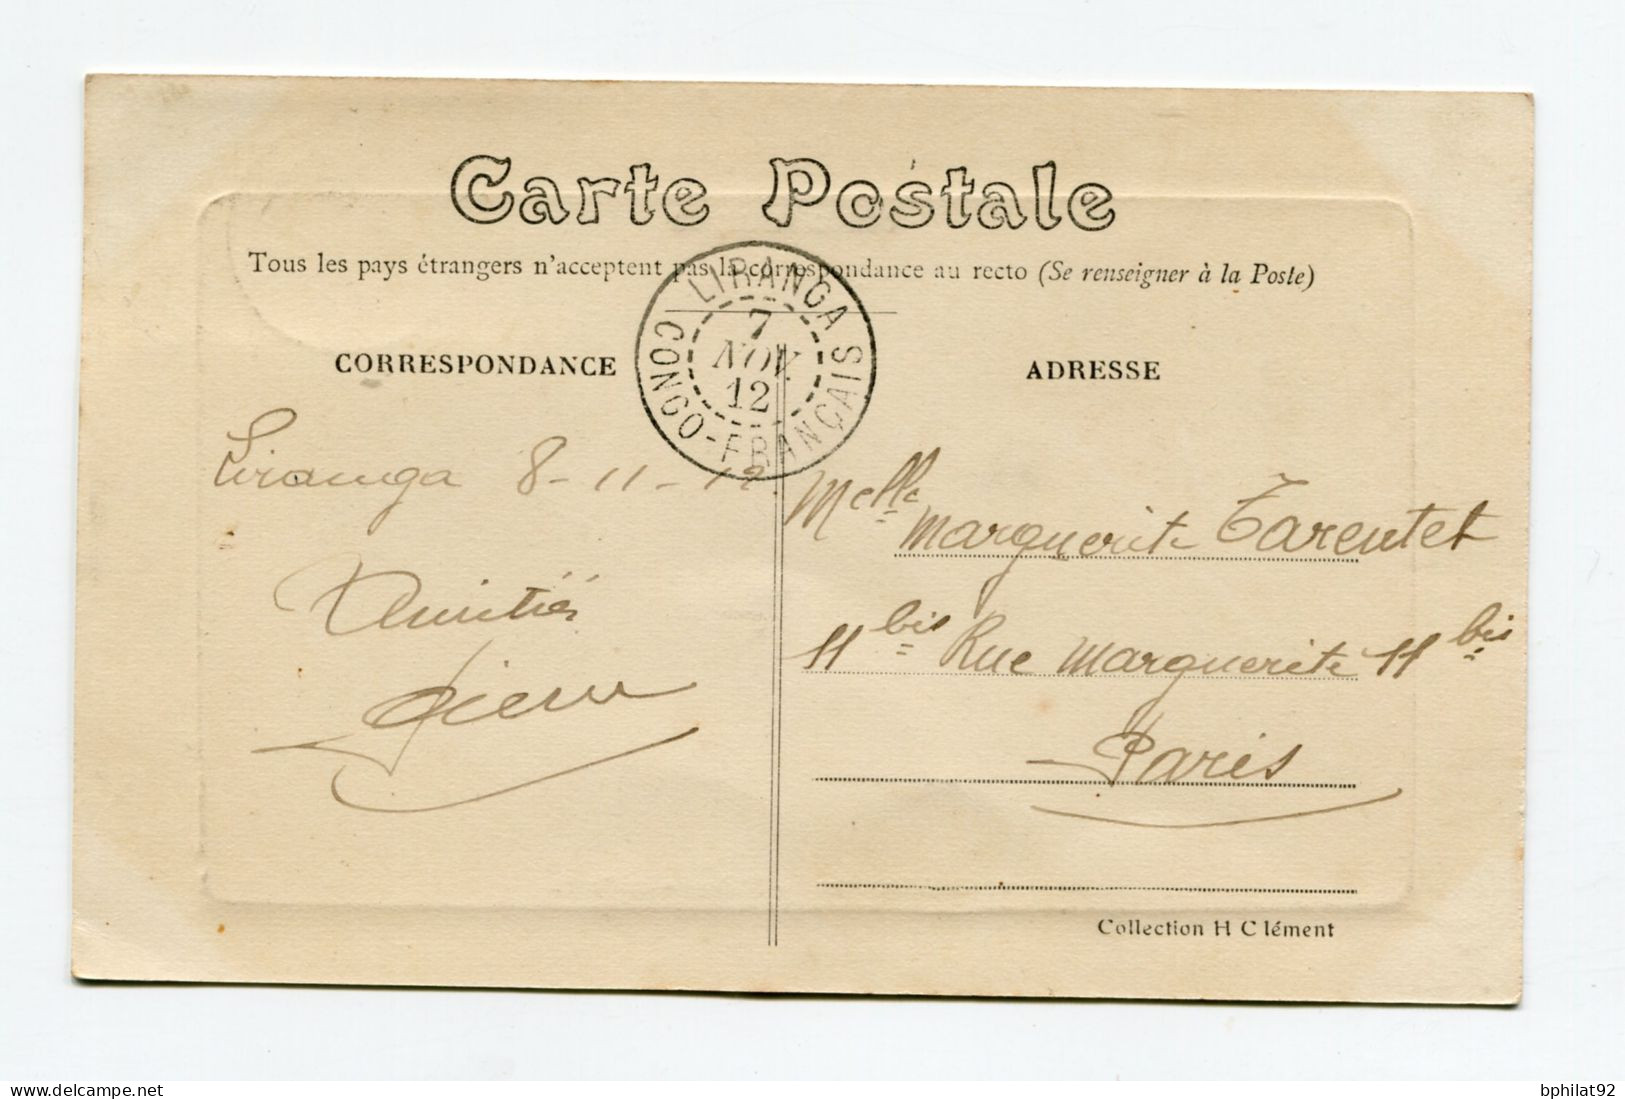 Carte Postale
Tous les pays étrangers n'acceptent pas la correspondance au recto (Se renseigner à la Poste)
LIRANGA
7
NOV.
12
CONGO-FRANÇAIS
CORRESPONDANCE
ADRESSE
Liranga 8-11-12.
Amitiés
Melle
Marguerite Tarentet
11 bis Rue Marguerite 11 bis
Paris
Collection H Clément
bphilat92